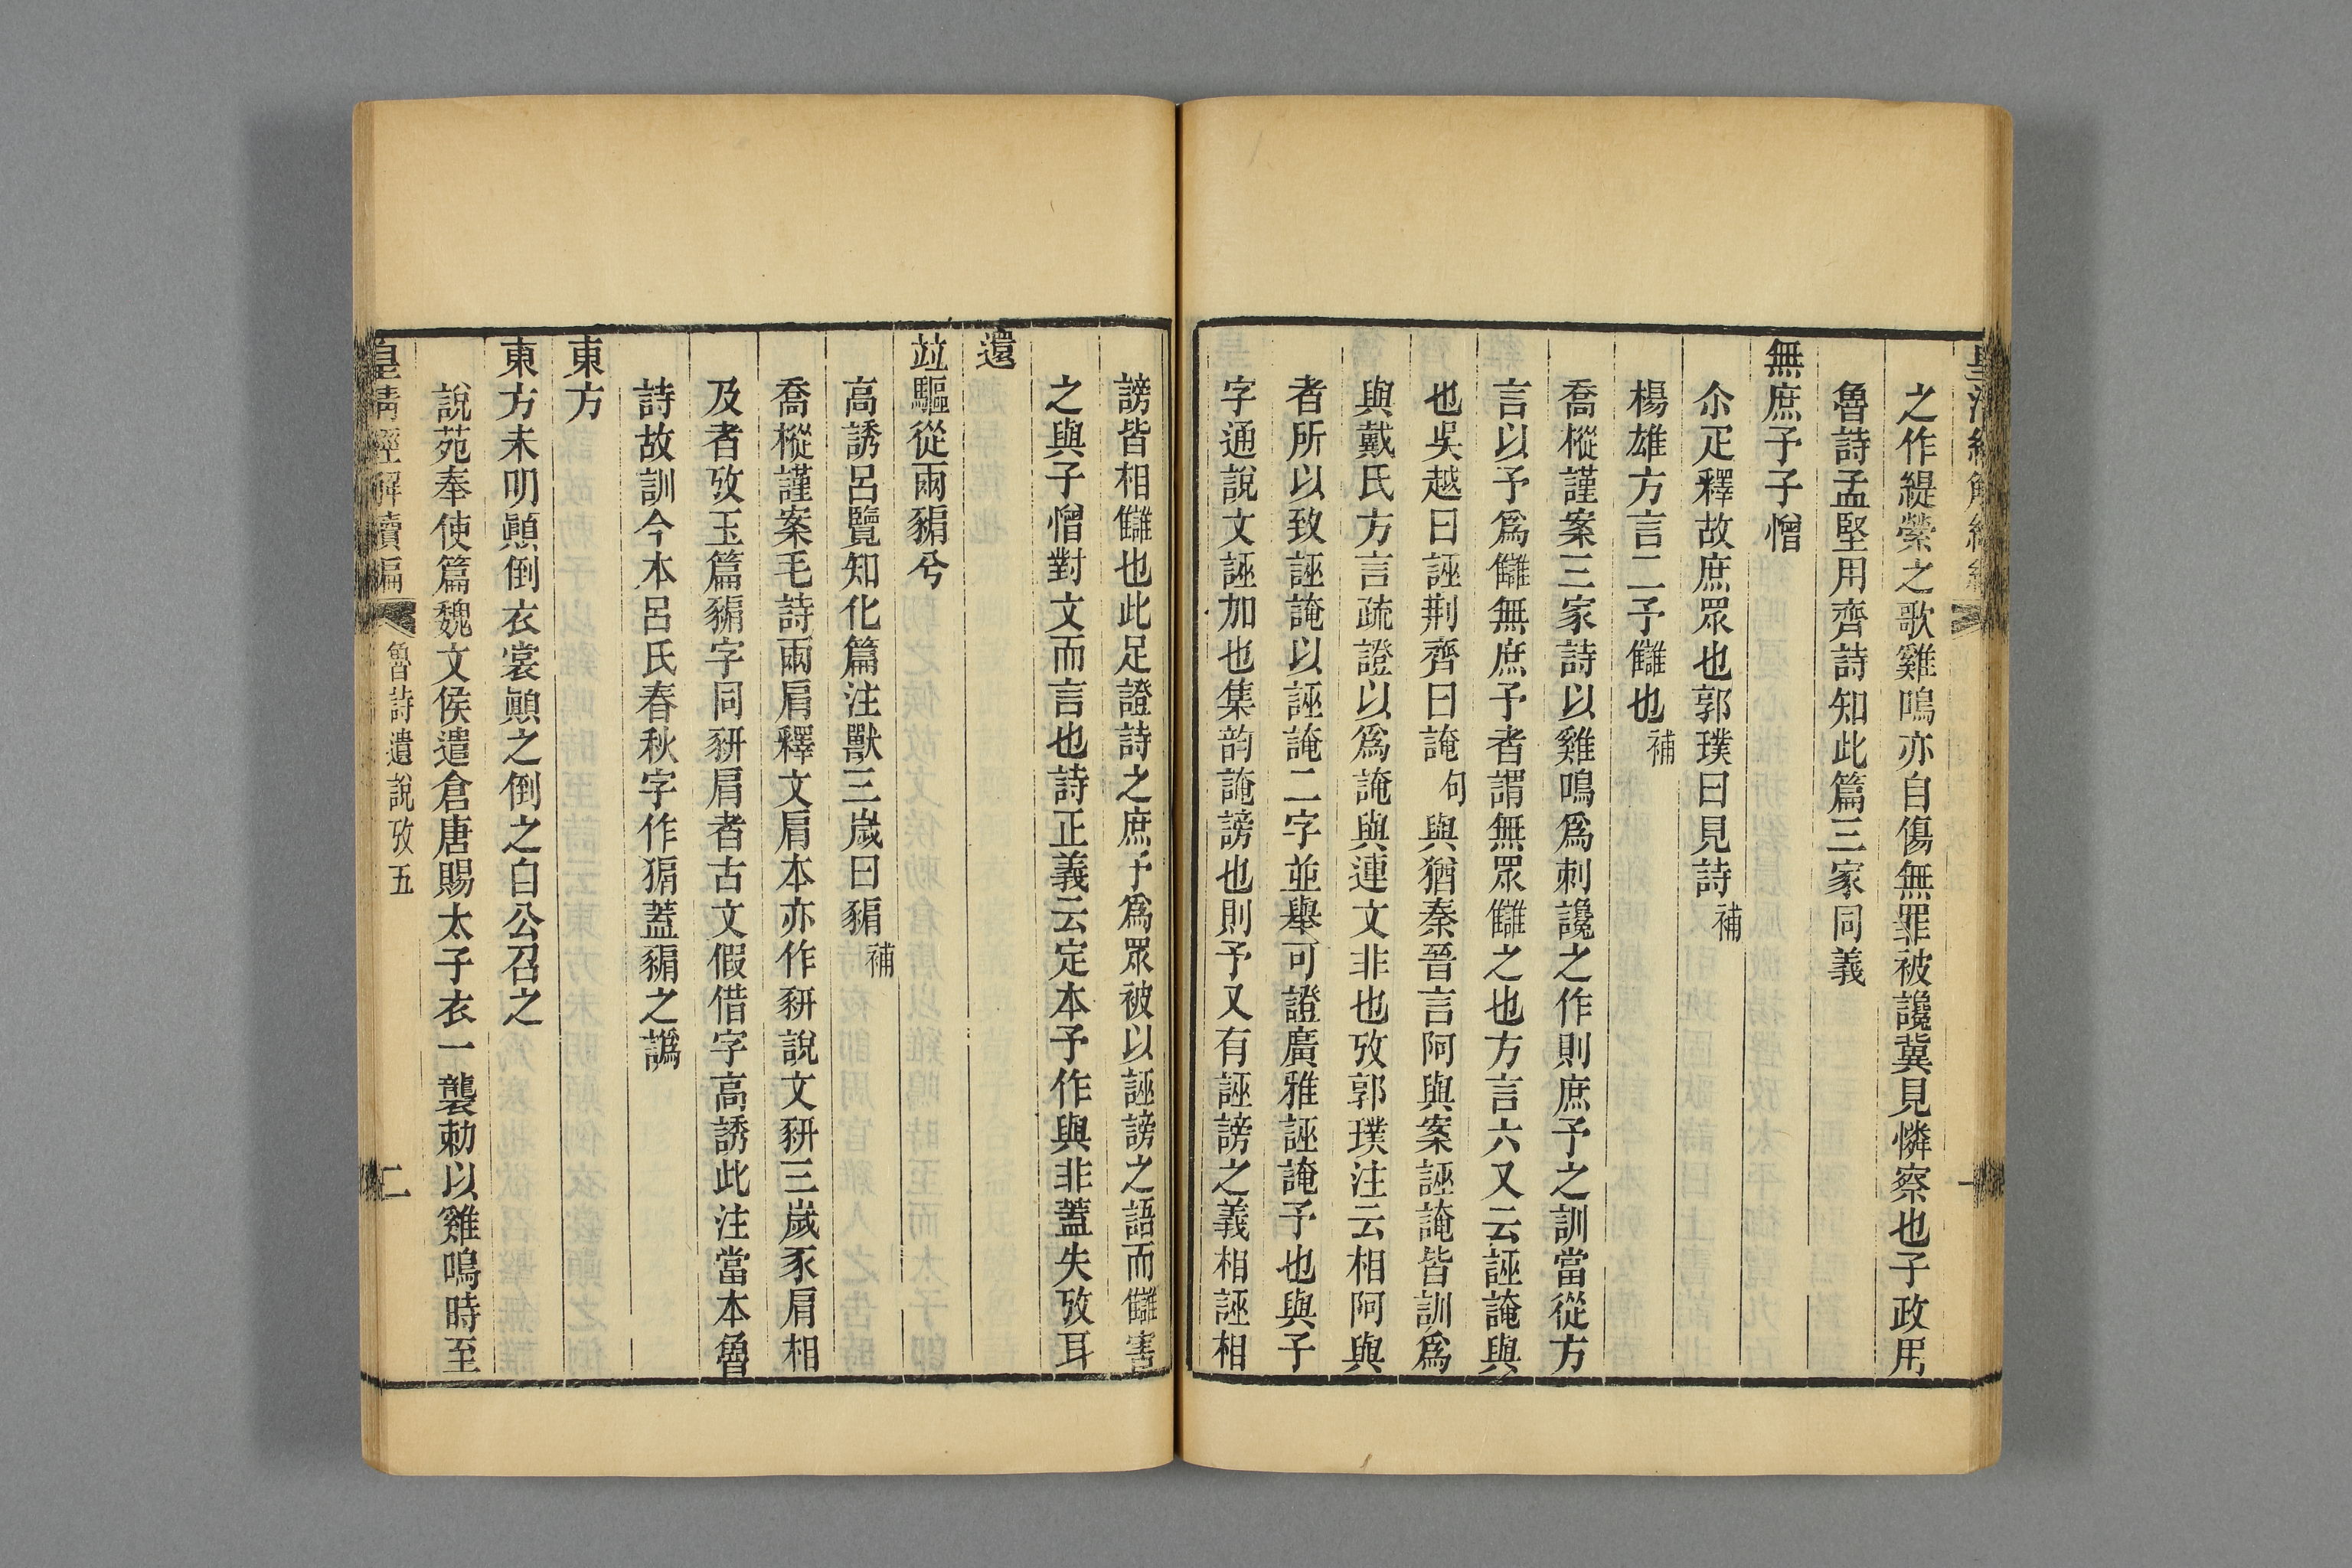 之作緹縈之歌雞鳴亦自傷無罪被讒冀見憐察也子政用
魯詩孟堅用齊詩知此篇三家同義
無庶予子憎
尒疋釋故庶眾也郭璞曰見詩補
楊雄方言二予讎也補
喬樅謹案三家詩以雞鳴爲刺讒之作則庶予之訓當從方
言以予爲讎無庶予者謂無眾讎之也方言六又云誣䛳與
也吳越曰誣荆齊曰䛳句與猶秦晉言阿與案誣䛳皆訓爲
與戴氏方言疏證以爲䛳與連文非也攷郭璞注云相阿與
者所以致誣䛳以誣䛳二字並舉可證廣雅誣䛳予也與予
字通說文誣加也集韵䛳謗也則予又有誣謗之義相誣相
謗皆相讎也此足證詩之庶予爲眾被以誣謗之語而讎害
之與子憎對文而言也詩正義云定本予作與非蓋失攷耳
還
竝驅從兩豣兮
高誘呂覽知化篇注獸三歲曰豣補
喬樅謹案毛詩兩肩釋文肩本亦作豜說文豜三歲豕肩相
及者攷玉篇豣字同豜肩者古文假借字高誘此注當本魯
詩故訓今本呂氏春秋字作猏蓋豣之譌
東方
東方未明顚倒衣裳顚之倒之自公召之
說苑奉使篇魏文侯遣倉唐賜太子衣一襲勅以雞鳴時至
皇清經解續編 魯詩遺說攷五 二